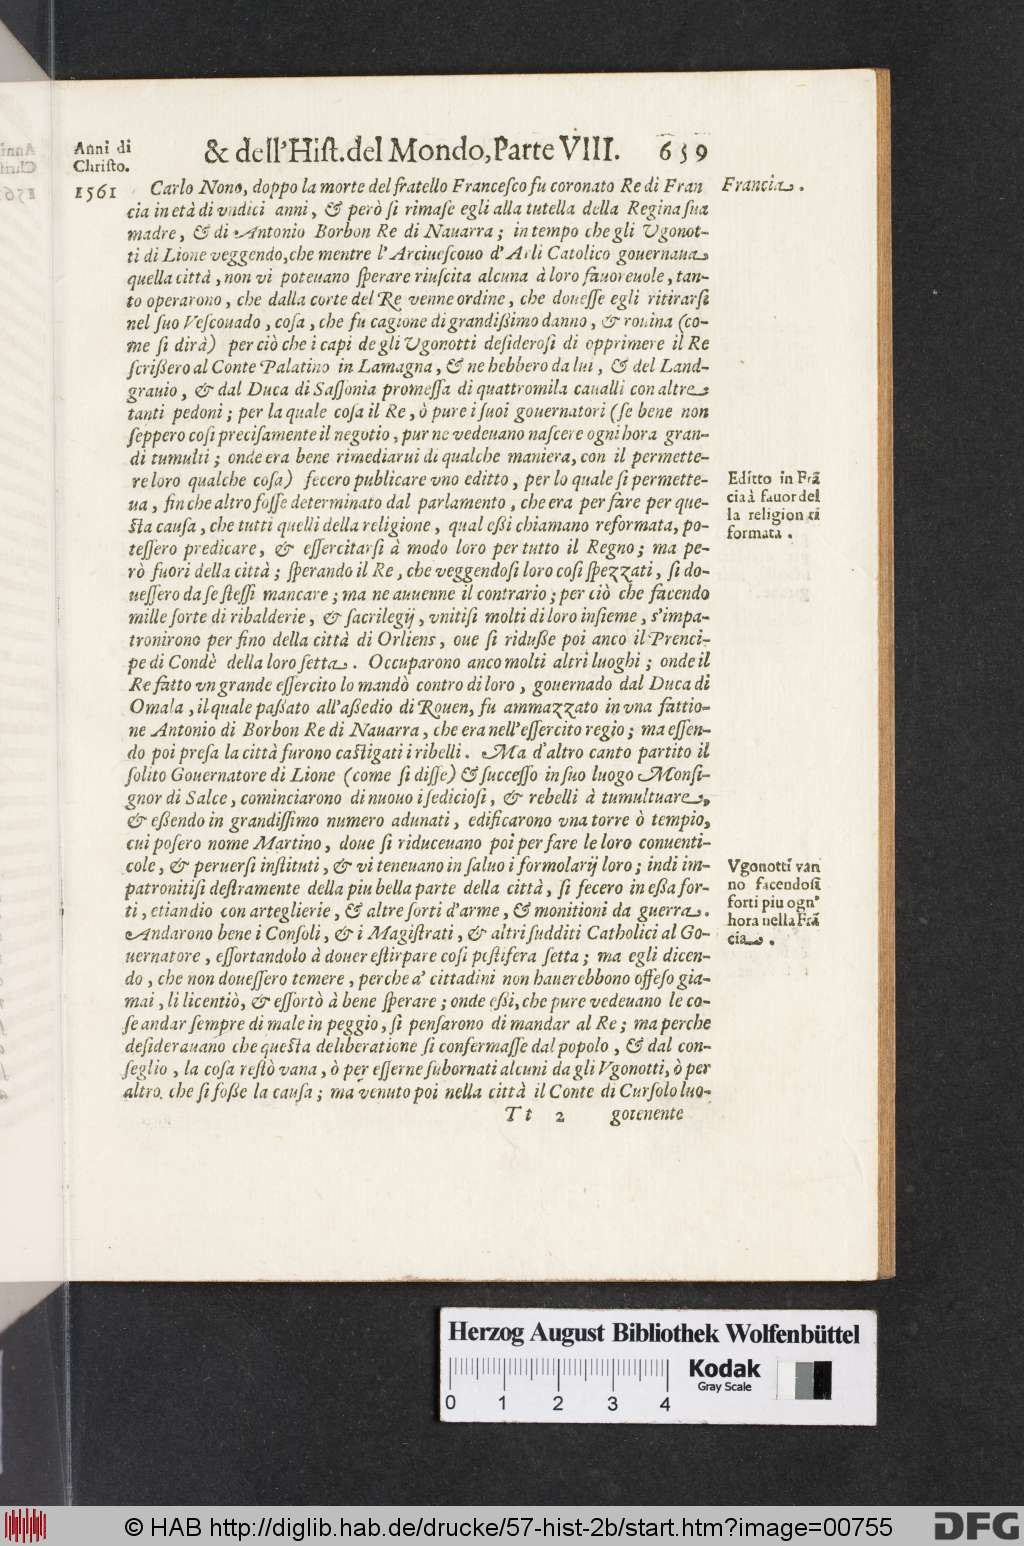 Anni di
Christo.
& dell'Hist. del Mondo, Parte VIII. 659
1561
Carlo Nono, doppo la morte del fratello Francesco fu coronato Re di Fran
Francia.
cia in età di vndici anni, & però si rimase egli alla tutella della Regina sua
madre, & di Antonio Borbon Re di Nauarra; in tempo che gli Vgonot-
ti di Lione veggendo, che mentre l'Arciuescouo d'Arli Catolico gouernaua
quella città, non vi poteuano sperare riuscita alcuna à loro fauoreuole, tan-
to operarono, che dalla corte del Re venne ordine, che douesse egli ritirarsi
nel suo Vescouado, cosa, che fu cagione di grandißimo danno, & rouina (co-
me si dirà) per ciò che i capi de gli Vgonotti desiderosi di opprimere il Re
scrißero al Conte Palatino in Lamagna, & ne hebbero da lui, & del Land-
grauio, & dal Duca di Sassonia promessa di quattromila caualli con altre
tanti pedoni; per la quale cosa il Re, ò pure i suoi gouernatori (se bene non
seppero cosi precisamente il negotio, pur ne vedeuano nascere ogni hora gran-
di tumulti; onde era bene rimediarui di qualche maniera, con il permette-
re loro qualche cosa) fecero publicare vno editto, per lo quale si permette-
ua, fin che altro fosse determinato dal parlamento, che era per fare per que-
sta causa, che tutti quelli della religione, qual eßi chiamano reformata, po-
tessero predicare, & essercitarsi à modo loro per tutto il Regno; ma pe-
rò fuori della città; sperando il Re, che veggendosi loro cosi spezzati, si do-
uessero da se stessi mancare; ma ne auuenne il contrario; per ciò che facendo
mille sorte di ribalderie, & sacrilegij, vnitisi molti di loro insieme, s'impa-
tronirono per fino della città di Orliens, oue si riduße poi anco il Prenci-
pe di Condè della loro setta. Occuparono anco molti altri luoghi; onde il
Re fatto vn grande essercito lo mandò contro di loro, gouernado dal Duca di
Omala, il quale paßato all'aßedio di Rouen, fu ammazzato in vna fattio-
ne Antonio di Borbon Re di Nauarra, che era nell'essercito regio; ma essen-
do poi presa la città furono castigati i ribelli. Ma d'altro canto partito il
solito Gouernatore di Lione (come si disse) & successo in suo luogo Monsi-
gnor di Salce, cominciarono di nuouo i sediciosi, & rebelli à tumultuare,
& eßendo in grandissimo numero adunati, edificarono vna torre ò tempio,
cui posero nome Martino, doue si riduceuano poi per fare le loro conuenti-
cole, & peruersi instituti, & vi teneuano in saluo i formolarij loro; indi im-
patronitisi destramente della piu bella parte della città, si fecero in eßa for-
ti, etiandio con arteglierie, & altre sorti d'arme, & monitioni da guerra.
Andarono bene i Consoli, & i Magistrati, & altri sudditi Catholici al Go-
uernatore, essortandolo à douer estirpare cosi pestifera setta; ma egli dicen-
do, che non douessero temere, perche a' cittadini non hauerebbono offeso gia-
mai, li licentiò, & essortò à bene sperare; onde eßi, che pure vedeuano le co-
se andar sempre di male in peggio, si pensarono di mandar al Re; ma perche
desiderauano che questa deliberatione si confermasse dal popolo, & dal con-
seglio, la cosa restò vana, ò per esserne subornati alcuni da gli Vgonotti, ò per
altro che si foße la causa; ma venuto poi nella città il Conte di Cursolo luo-
Tt 2 gotenente
Editto in Frã
cia à fauor del
la religion ri
formata.
Vgonotti van
no facendosi
forti piu ogn'
hora nella Frã
cia.
Herzog August Bibliothek Wolfenbüttel
0 1 2 3 4
Kodak
Gray Scale
© HAB http://diglib.hab.de/drucke/57-hist-2b/start.htm?image=00755
DFG